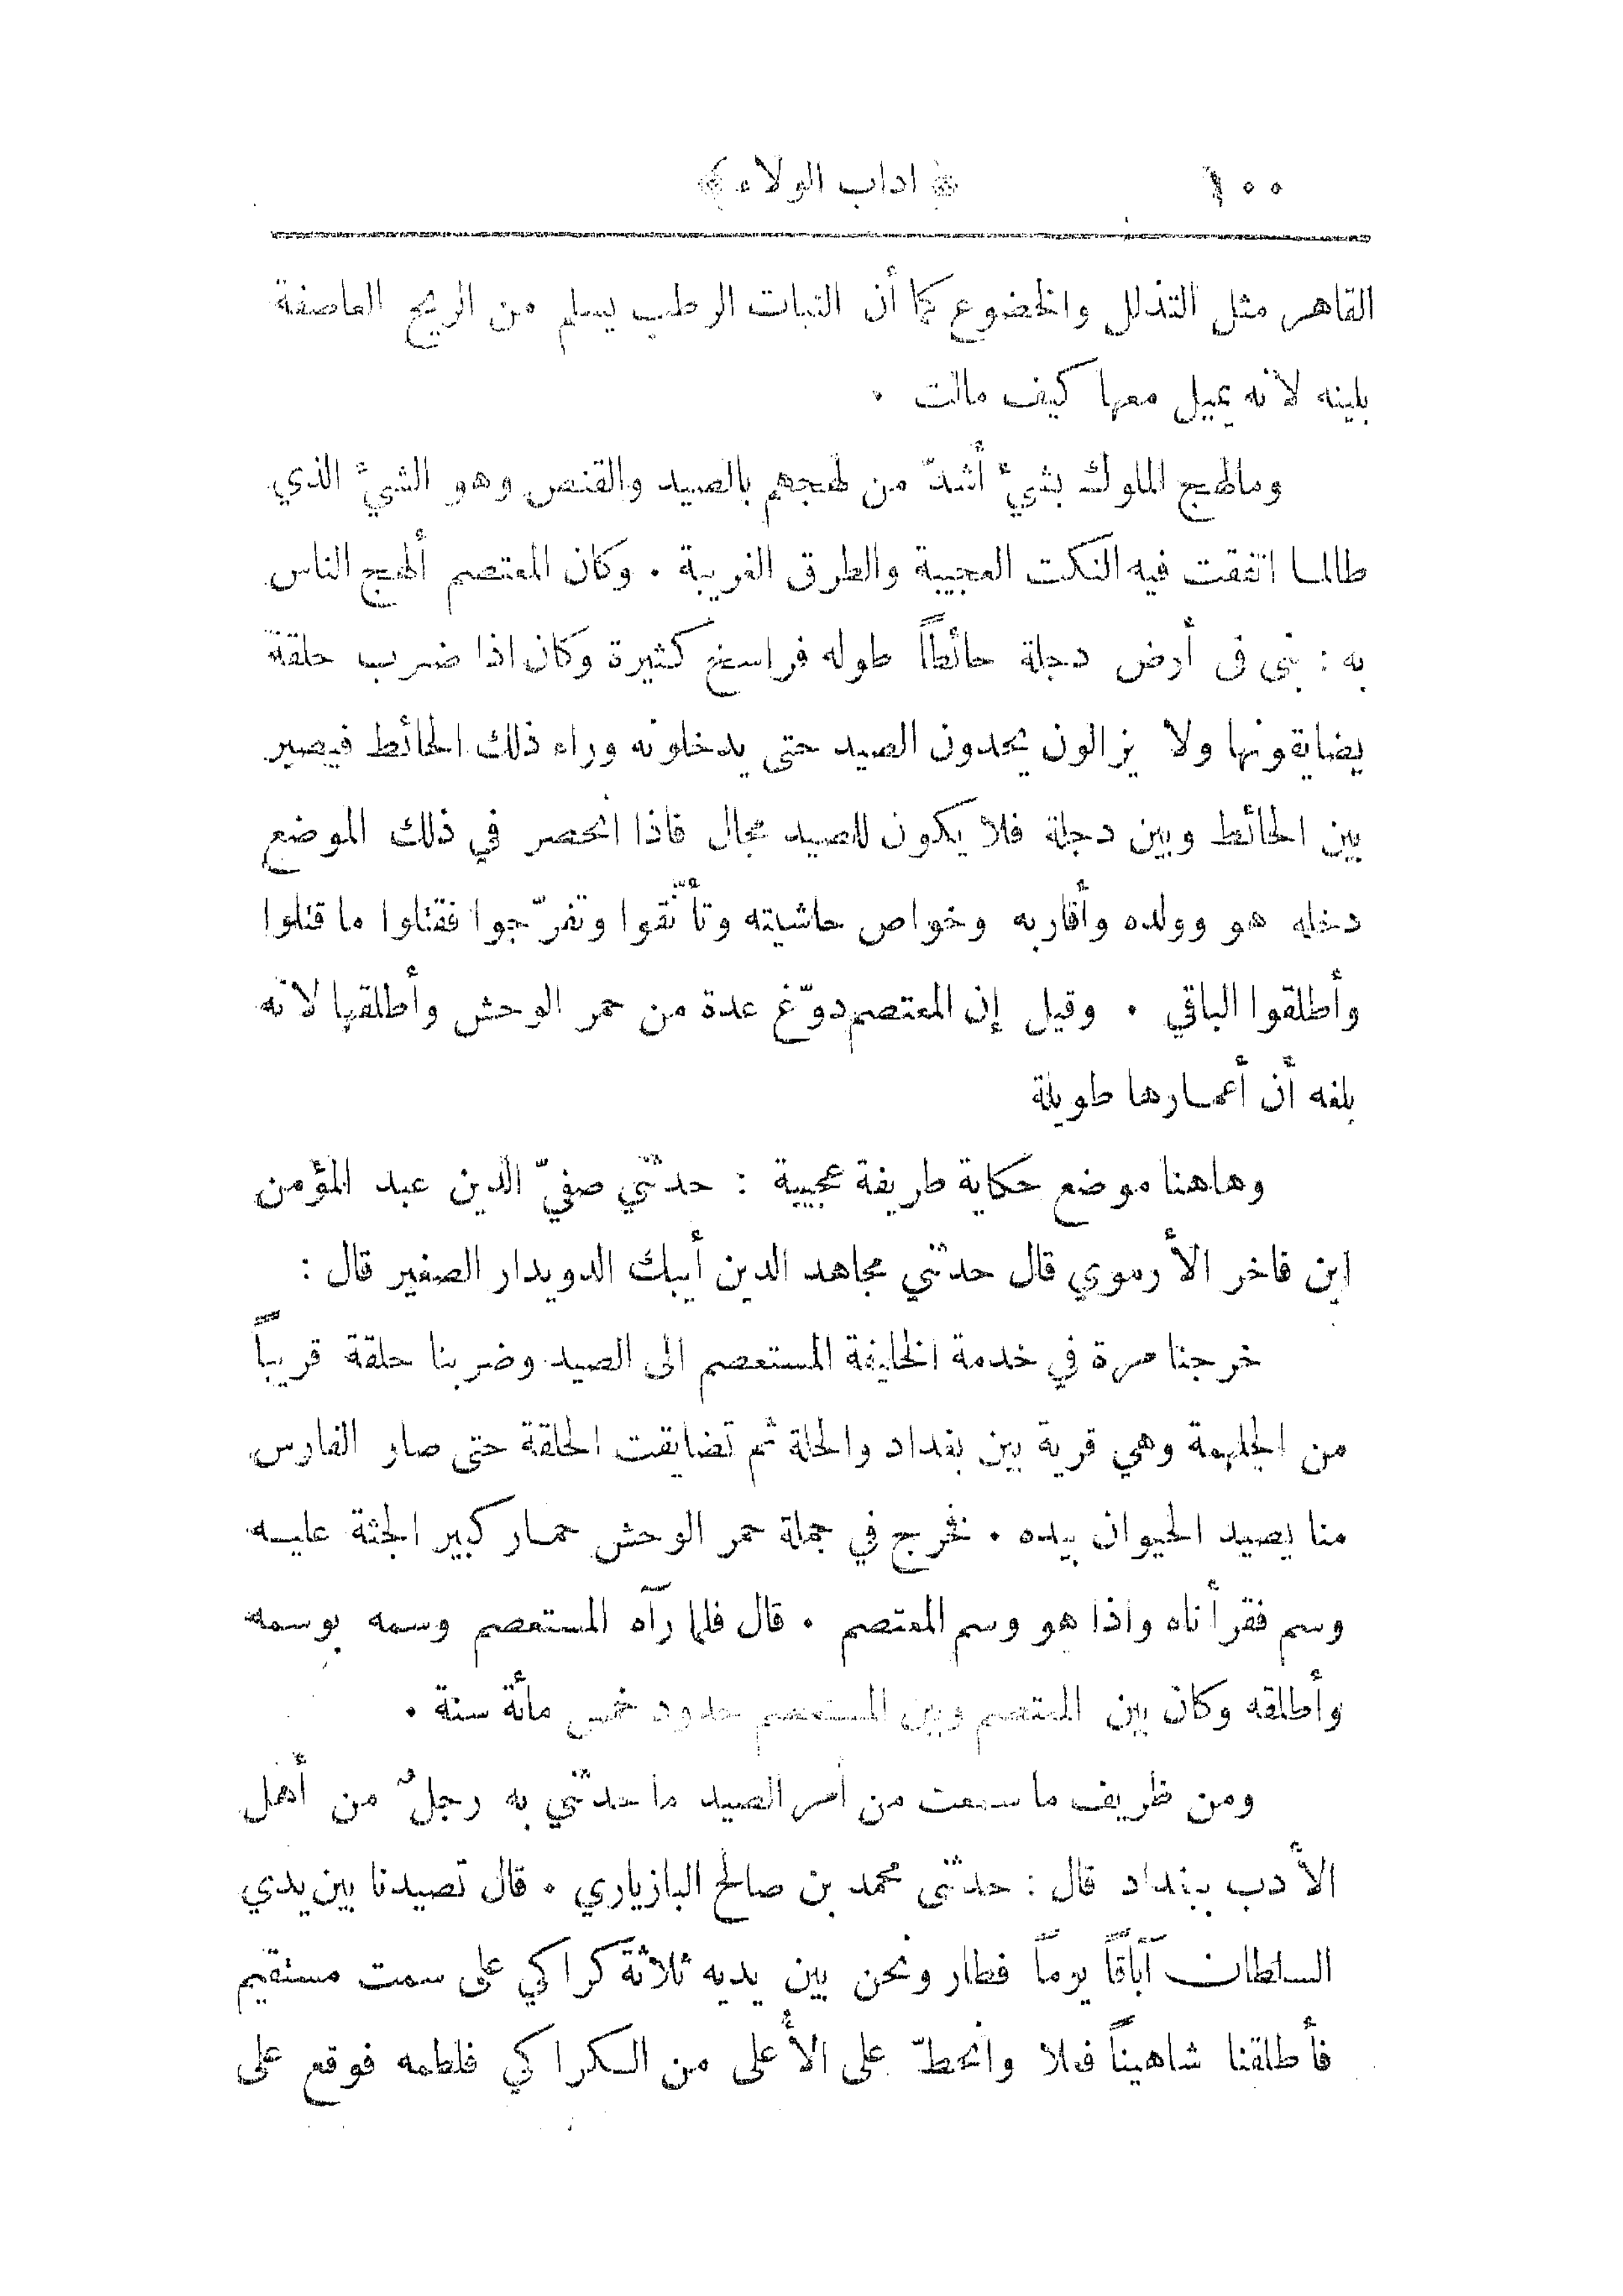 ١٠٠ ﴿ اداب الولاء ﴾
القاهر مثل التذلل والخضوع كما أن النبات الرطب يسلم من الريح العاصفة
بلينه لانه يميل معها كيف مالت .
ومالهج الملوك بشيء أشدّ من لهجهم بالصيد والقنص وهو الشيء الذي
طالما اتفقت فيه النكت العجيبة والطرق الغريبة . وكان المعتصم ألهج الناس
به : بنى فى أرض دجلة حائطاً طوله فراسخ كثيرة وكان اذا ضرب حلقة
يضايقونها ولا يزالون يحدون الصيد حتى يدخلونه وراء ذلك الحائط فيصير
بين الحائط وبين دجلة فلا يكون للصيد مجال فاذا انحصر في ذلك الموضع
دخله هو وولده وأقاربه وخواص حاشيته وتأنّقوا وتفرّجوا فقتلوا ما قتلوا
وأطلقوا الباقي . وقيل إن المعتصم دوّغ عدة من حمر الوحش وأطلقها لانه
بلغه أن أعمارها طويلة
وهاهنا موضع حكاية طريفة عجيبة : حدثّني صفيّ الدين عبد المؤمن
ابن فاخر الأرموي قال حدثني مجاهد الدين أيبك الدويدار الصغير قال :
خرجنا مرة في خدمة الخليفة المستعصم الى الصيد وضربنا حلقة قريباً
من الجلهمة وهي قرية بين بغداد والحلة ثم تضايقت الحلقة حتى صار الفارس
منا يصيد الحيوان بيده . فخرج في جملة حمر الوحش حمار كبير الجثة عليه
وسم فقرأناه واذا هو وسم المعتصم . قال فلما رآه المستعصم وسمه بوسمه
وأطلقه وكان بين المعتصم وبين المستعصم حدود خمس مائة سنة .
ومن ظريف ما سمعت من أمر الصيد ما حدثّني به رجلٌ من أهل
الأدب ببغداد قال : حدثّنى محمد بن صالح البازياري . قال تصيدنا بين يدي
السلطان آباقاً يوماً فطار ونحن بين يديه ثلاثة كراكي على سمت مستقيم
فأطلقنا شاهيناً فعلا وانحطّ على الأعلى من الكراكي فلطمه فوقع على